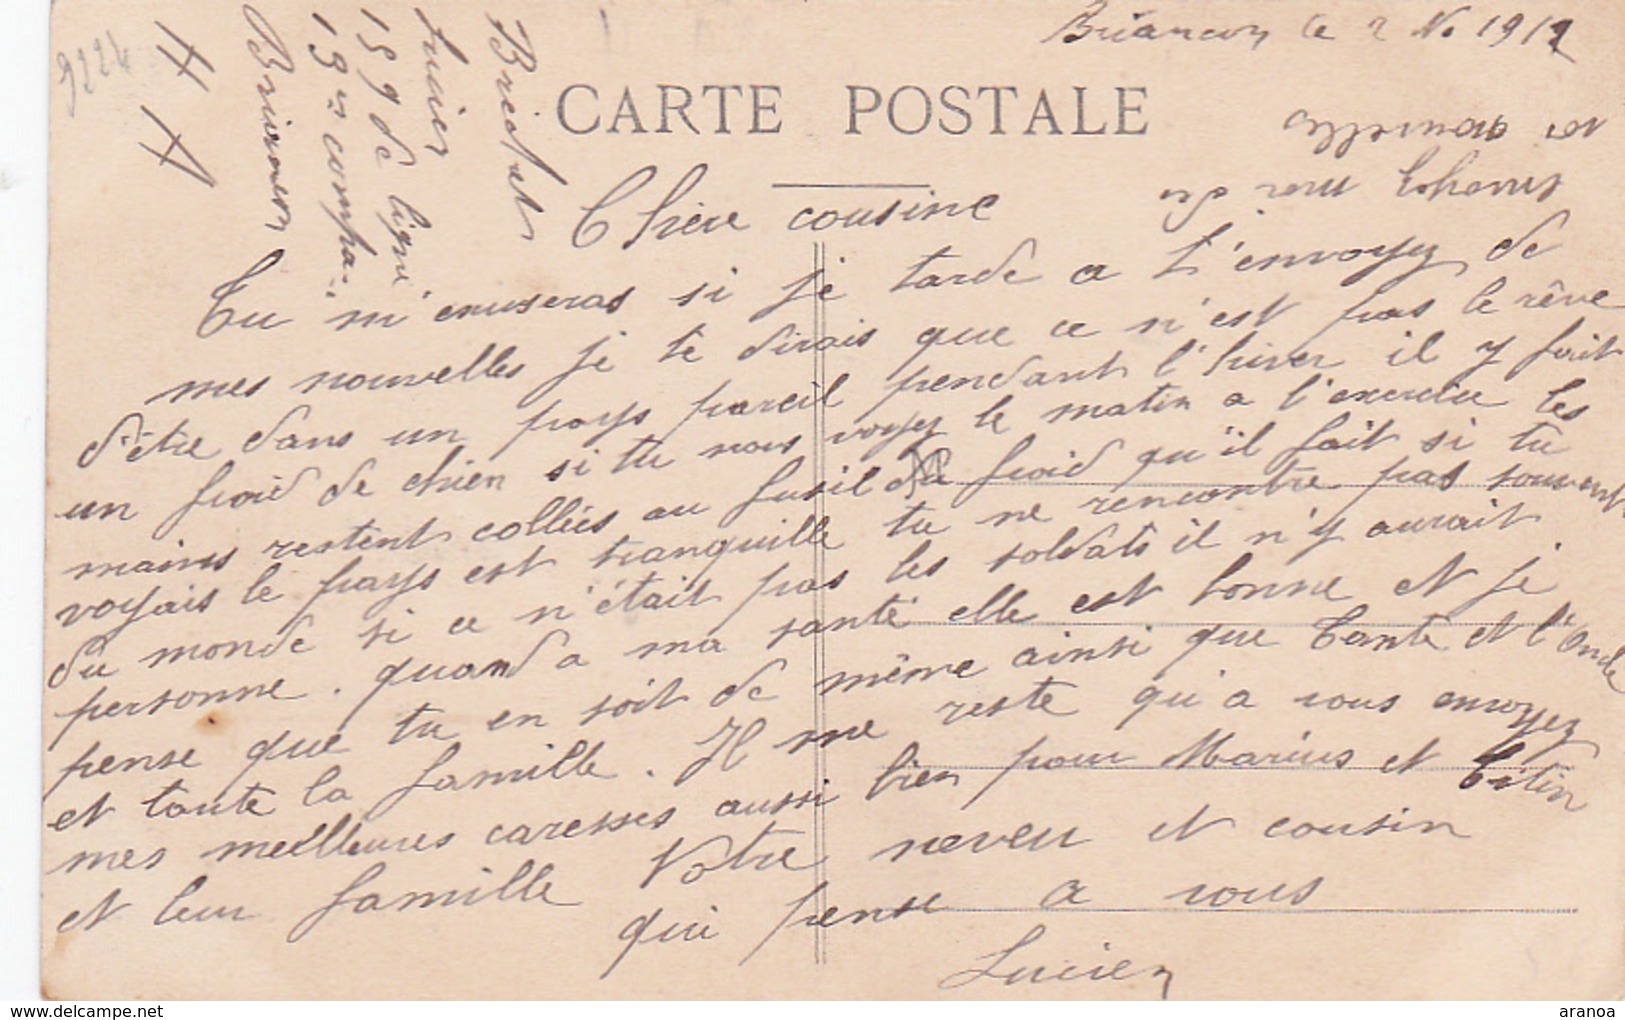 Briancon le 2 No 1912
CARTE POSTALE
Chère cousine
Tu m'exuseras si je tarde a t'envoyez de
mes nouvelles je te dirais que ce n'est pas le rêve
d'être dans un pays pareil pendant l'hiver il y fait
un froid de chien si tu nous voyez le matin a l'exercice les
mains restent collées au fusil du froid qu'il fait si tu
voyais le pays est tranquille tu ne rencontre pas souvent
du monde si ce n'était pas les soldats il n'y aurait
personne. quand a ma santé elle est bonne et je
pense que tu en soit de même ainsi que Tante et l'Oncle
et toute la famille. Il me reste qu'a vous envoyez
mes meilleures caresses aussi bien pour Marius et Titin
et leur famille Votre neveu et cousin
qui pense a vous
Lucien
Lucien
159 de ligne
13 compa.
Briançon
H A
9224
envoyez moi de
vos nouvelles
aranoa